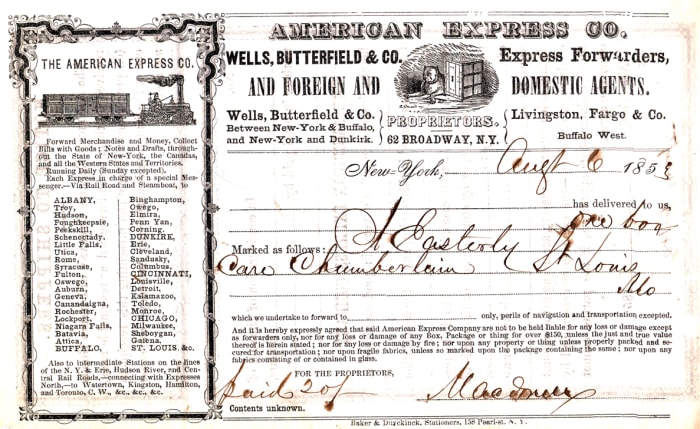 AMERICAN EXPRESS CO.
THE AMERICAN EXPRESS CO.
Forward Merchandise and Money, Collect
Bills with Goods; Notes and Drafts, through-
out the State of New-York, the Canadas,
and all the Western States and Territories.
Running Daily (Sunday excepted).
Each Express in charge of a special Mes-
senger.—Via Rail Road and Steamboat, to
ALBANY,
Troy,
Hudson,
Poughkeepsie,
Peekskill,
Schenectady,
Little Falls,
Utica,
Rome,
Syracuse,
Fulton,
Oswego,
Auburn,
Geneva,
Canandaigna,
Rochester,
Lockport,
Niagara Falls,
Batavia,
Attica,
BUFFALO,
Binghampton,
Owego,
Elmira,
Penn Yan,
Corning,
DUNKIRK,
Erie,
Cleveland,
Sandusky,
Columbus,
CINCINNATI,
Louisville,
Detroit,
Kalamazoo,
Toledo,
Monroe,
CHICAGO,
Milwaukee,
Sheboygan,
Galena,
ST. LOUIS, &c.
Also to intermediate Stations on the lines
of the N. Y. & Erie, Hudson River, and Cen-
tral Rail Roads,—connecting with Expresses
North,—to Watertown, Kingston, Hamilton,
and Toronto, C. W., &c., &c., &c.
WELLS, BUTTERFIELD & CO. Express Forwarders,
AND FOREIGN AND DOMESTIC AGENTS.
Wells, Butterfield & Co.
Between New-York & Buffalo,
and New-York and Dunkirk.
PROPRIETORS.
62 BROADWAY, N.Y.
Livingston, Fargo & Co.
Buffalo West.
New-York, Augt 6 1853
has delivered to us,
one box
Marked as follows: A Easterly
Care Chamberlain St Louis
Mo
which we undertake to forward to only, perils of navigation and transportation excepted.
And it is hereby expressly agreed that said American Express Company are not to be held liable for any loss or damage except
as forwarders only, nor for any loss or damage of any Box, Package or thing for over $150, unless the just and true value
thereof is herein stated; nor for any loss or damage by fire; nor upon any property or thing unless properly packed and se-
cured for transportation; nor upon fragile fabrics, unless so marked upon the package containing the same; nor upon any
fabrics consisting of or contained in glass.
FOR THE PROPRIETORS,
paid 20/
Contents unknown.
Baker & Duyckinck, Stationers, 158 Pearl-st. N. Y.